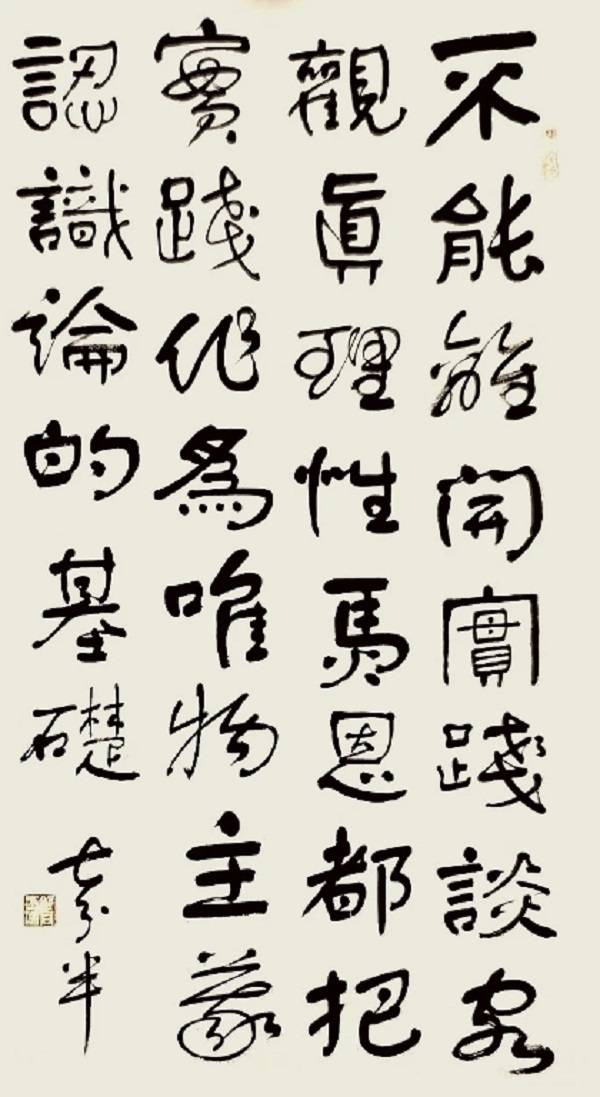 不能離開實踐談客
觀眞理性馬恩都把
實踐作爲唯物主義
認識論的基礎